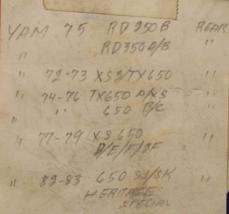 YAM 75 RD250B REAR
RD350A/B "
" 72-73 XS2/TX650 "
" 74-76 TX650 A/XS "
" " 650 B/C "
" 77-79 XS 650 "
D/E/F/SF
" 82-83 650 SJ/SK "
HERITAGE
SPECIAL